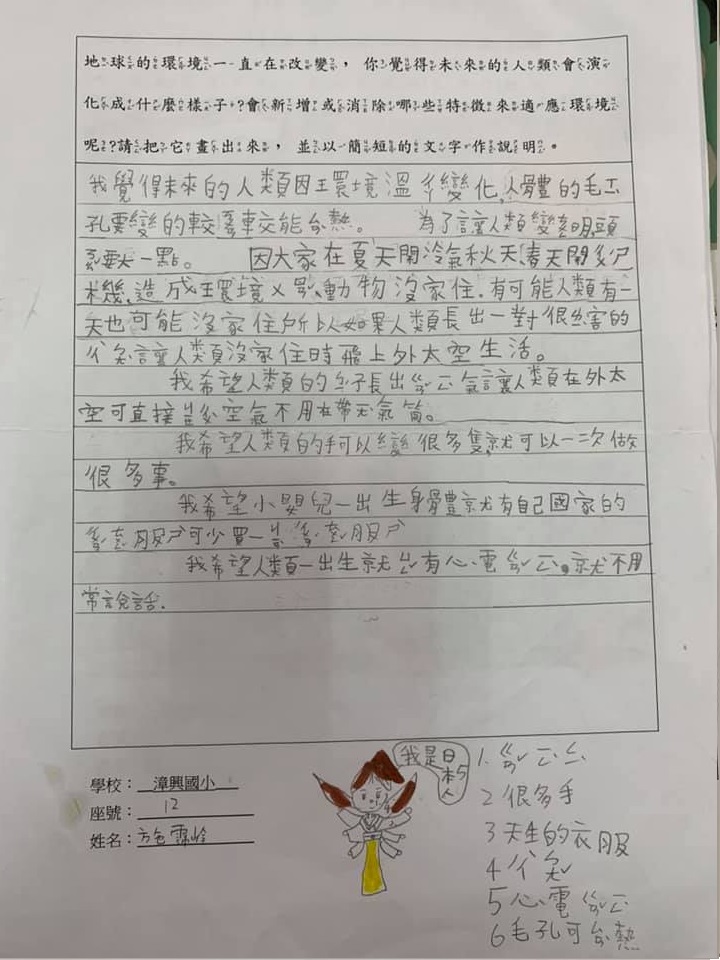 地球的環境一直在改變，你覺得未來的人類會演
化成什麼樣子?會新增或消除哪些特徵來適應環境
呢?請把它畫出來，並以簡短的文字作說明。
我覺得未來的人類因環境溫ㄔ變化,人體的毛
孔要變的較 較能 熱。 為了讓人類變 明,頭
要大一點。 因大家在夏天開冷氣秋天、春天開
機,造成環境ㄨ ,動物沒家住.有可能人類有一
天也可能沒家住所以如果人類長出一對很 害的
讓人類沒家住時飛上外太空生活。
我希望人類的 子長出 氣讓人類在外太
空可直接 空氣不用在帶 氣筒。
我希望人類的手可以變很多隻,就可以一次做
很多事。
我希望小嬰兒一出生身體就有自己國家的
服 可少買一 服
我希望人類一出生就 有心電 。就不用
常說話.
學校：漳興國小
座號：12
姓名：
我是日本人
1.
2 很多手
3 天生的衣服
4
5 心電
6 毛孔可 熱